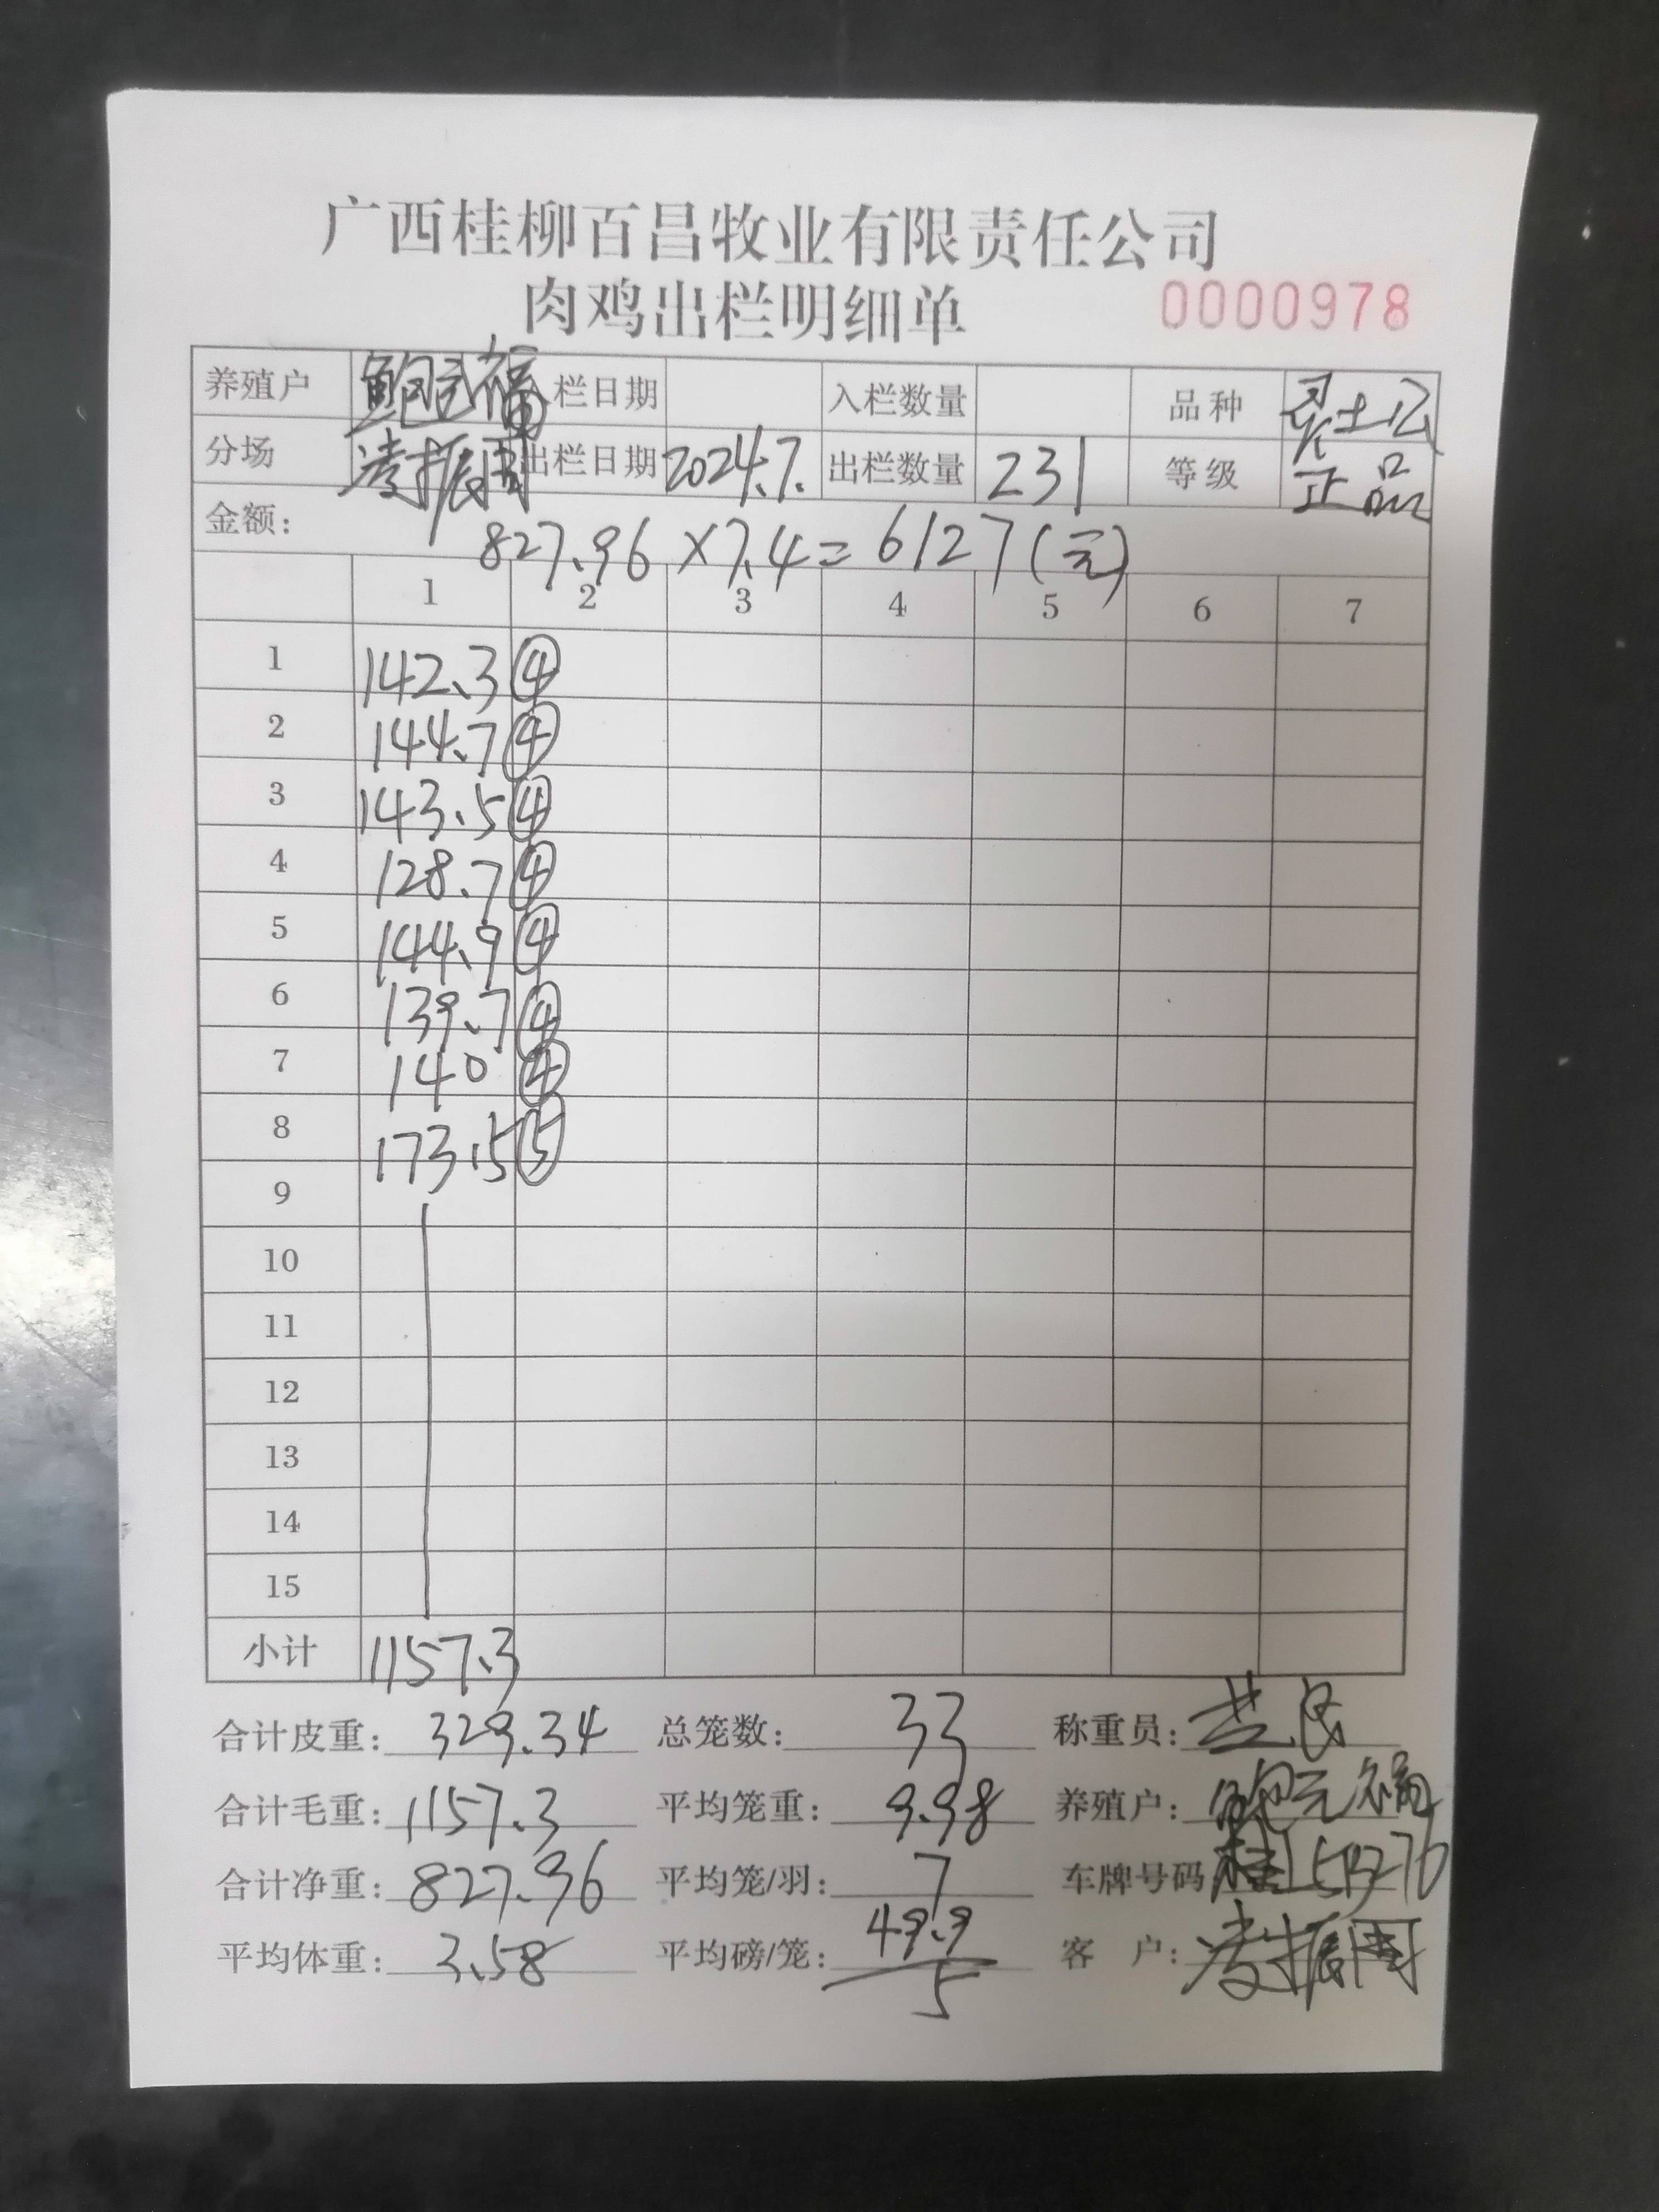 广西桂柳百昌牧业有限责任公司
肉鸡出栏明细单 0000978
养殖户 鲍元福 入栏日期 入栏数量 品种 灵土公
分场 凌振国 出栏日期 2024.7. 出栏数量 231 等级 正品
金额: 827.96×7.4=6127(元)
1 2 3 4 5 6 7
1 142.3 ④
2 144.7 ④
3 143.5 ④
4 128.7 ④
5 144.9 ④
6 139.7 ④
7 140 ④
8 173.5 ⑤
9
10
11
12
13
14
15
小计 1157.3
合计皮重: 329.34 总笼数: 33 称重员:
合计毛重: 1157.3 平均笼重: 9.98 养殖户: 鲍元福
合计净重: 827.96 平均笼/羽: 7 车牌号码
平均体重: 3.58 平均磅/笼: 49.9 客 户: 凌振国
5